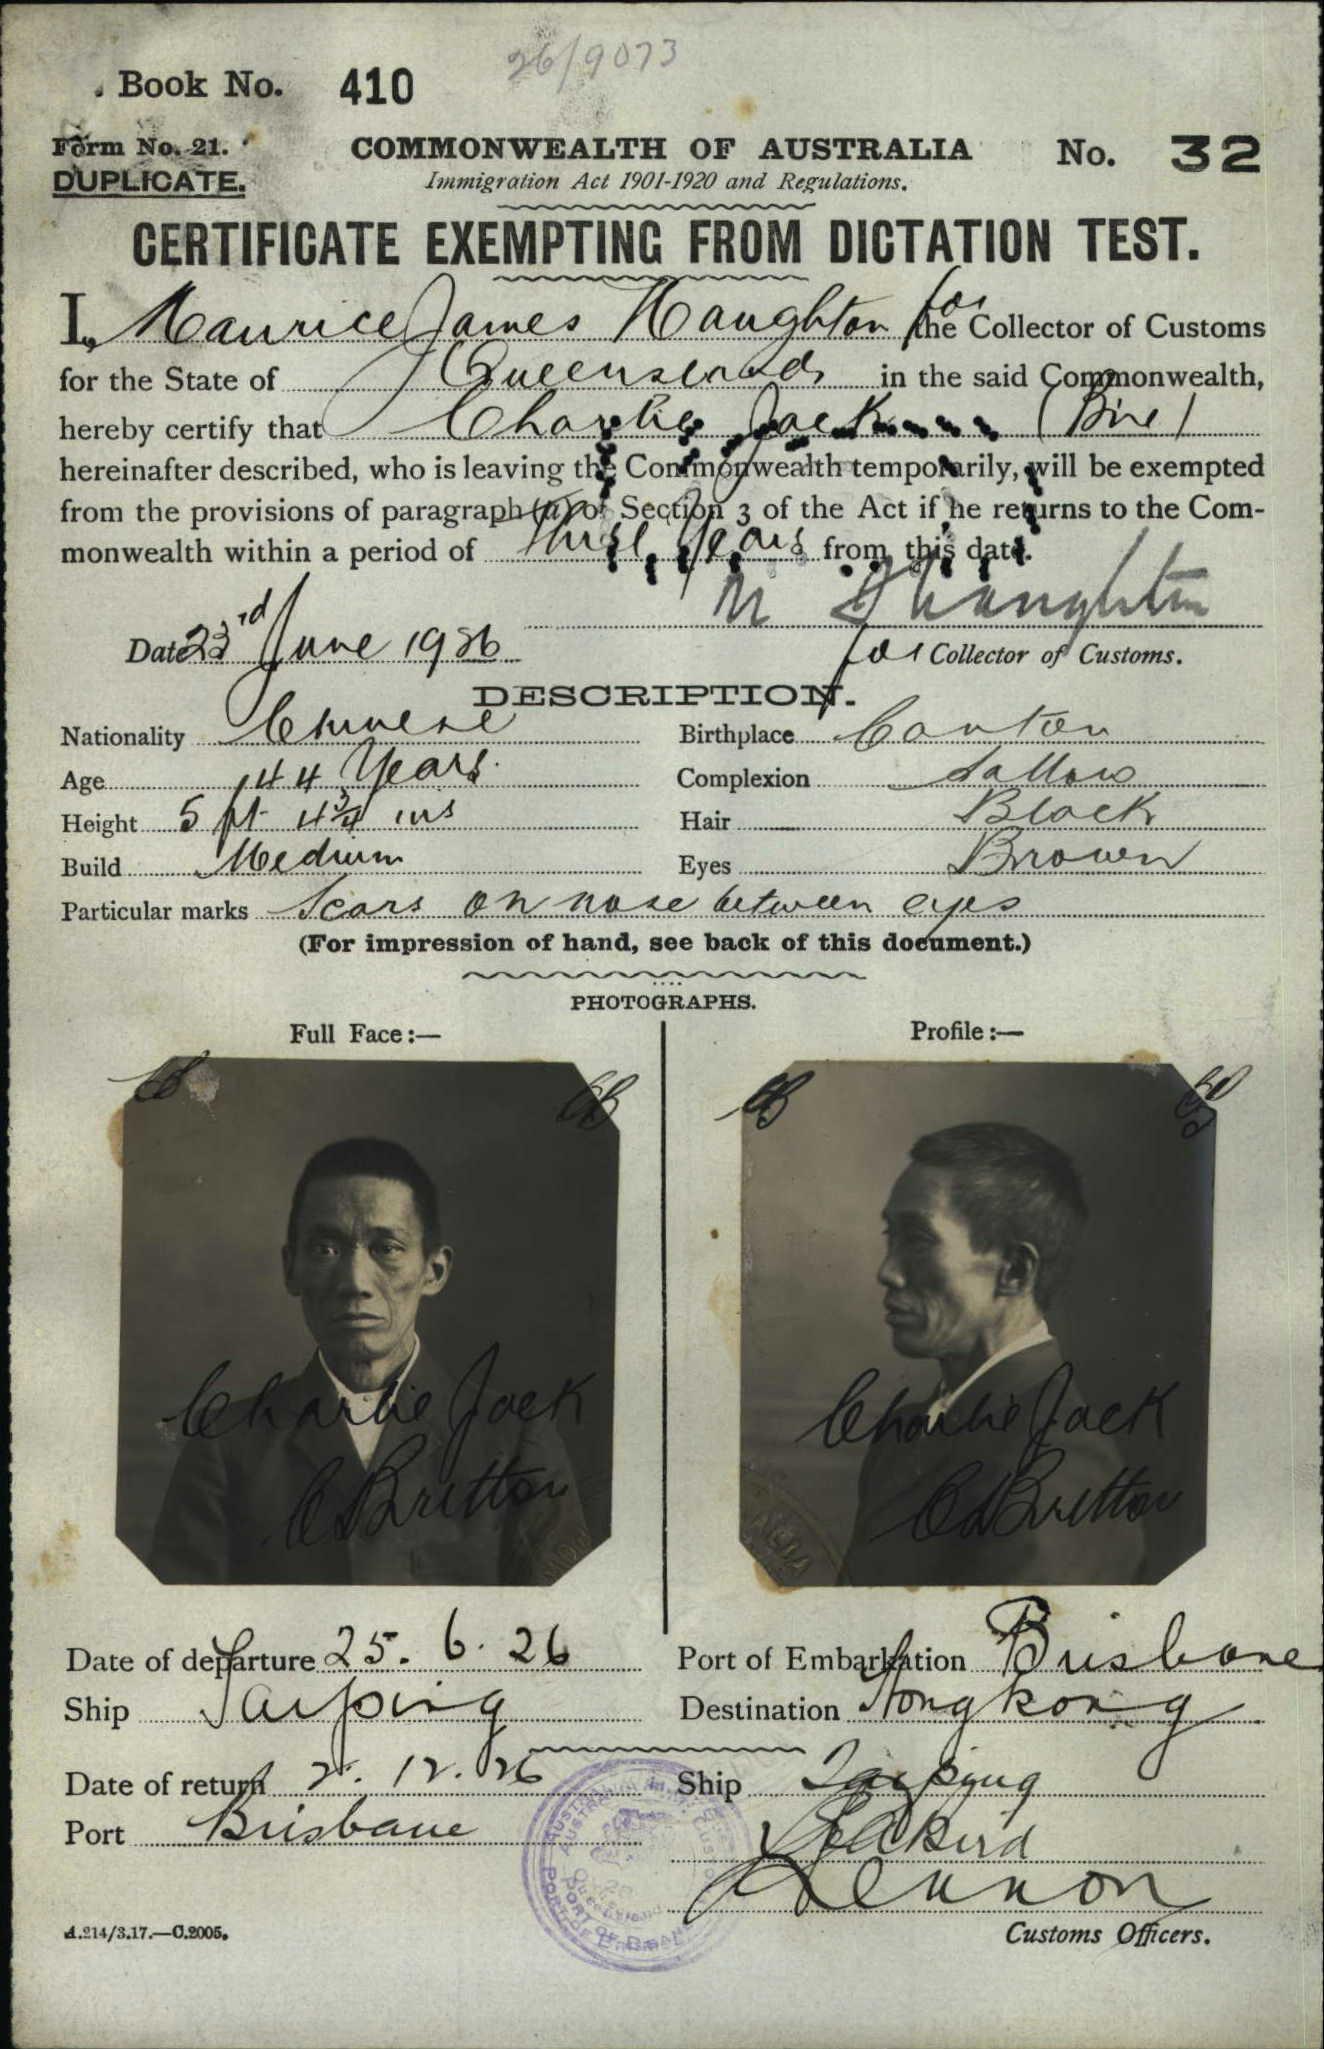 26/9073
Book No. 410
Form No. 21.
DUPLICATE.
COMMONWEALTH OF AUSTRALIA
No. 32
Immigration Act 1901-1920 and Regulations.
CERTIFICATE EXEMPTING FROM DICTATION TEST.
I, Maurice James Haughton for the Collector of Customs
for the State of Queensland in the said Commonwealth,
hereby certify that Charlie Jack
hereinafter described, who is leaving the Commonwealth temporarily, will be exempted
from the provisions of paragraph (a) of Section 3 of the Act if he returns to the Com-
monwealth within a period of three Years from this date.
M J Haughton
Date 23rd June 1926
for Collector of Customs.
DESCRIPTION.
Nationality Chinese
Birthplace Canton
Age 44 Years.
Complexion Sallow
Height 5 ft 4 3/4 ins
Hair Black
Build Medium
Eyes Brown
Particular marks Scars on nose between eyes
(For impression of hand, see back of this document.)
PHOTOGRAPHS.
Full Face:—
Profile:—
Charlie Jack
C Britton
Charlie Jack
C Britton
Date of departure 25. 6. 26
Port of Embarkation Brisbane
Ship Taiping
Destination Hongkong
Date of return 2. 12. 26
Ship Taiping
Port Brisbane
Bird
Lennon
A.214/3.17.—C.2005.
Customs Officers.